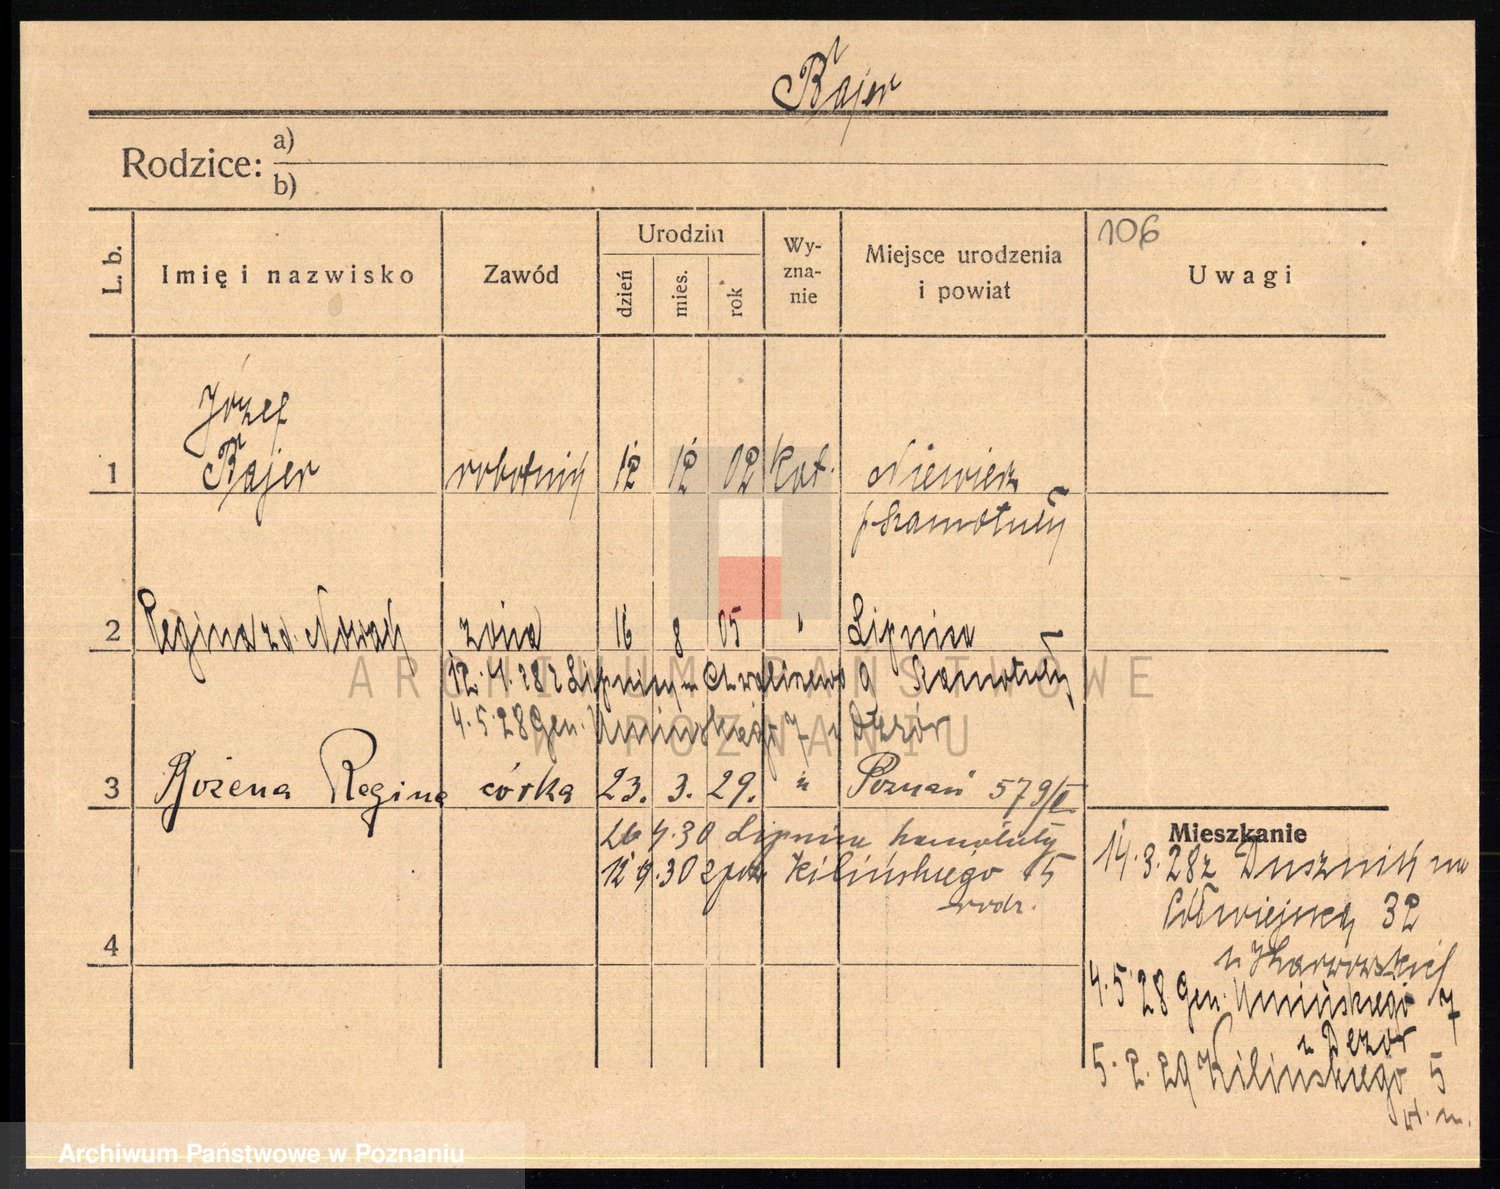 Bajer
Rodzice: a)
b)
L. b. Imię i nazwisko Zawód Urodzin dzień mies. rok Wyzna-nie Miejsce urodzenia i powiat 106 Uwagi
Józef
1 Bajer robotnik 12 12 02 kat. Niewierz
p. Szamotuły
2 Regina zd. Nowak żona 16 8 05 " Lipnica
12.4.28 z Lipnicy Szamotuły
4.5.28 Gen. Umińskiego 7
3 Bożena Regina córka 23. 3. 29. " Poznań 579/II
26 4.30 Lipnica Szamotuły
12 9.30 Kilińskiego 5
rodz.
4
Mieszkanie
14.3.28 z Dusznik na
Półwiejską 32
4.5.28 Gen. Umińskiego 7
5.2.29 Kilińskiego 5
ARCHIWUM PAŃSTWOWE
W POZNANIU
Archiwum Państwowe w Poznaniu